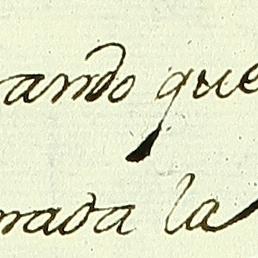 ando que
rada la